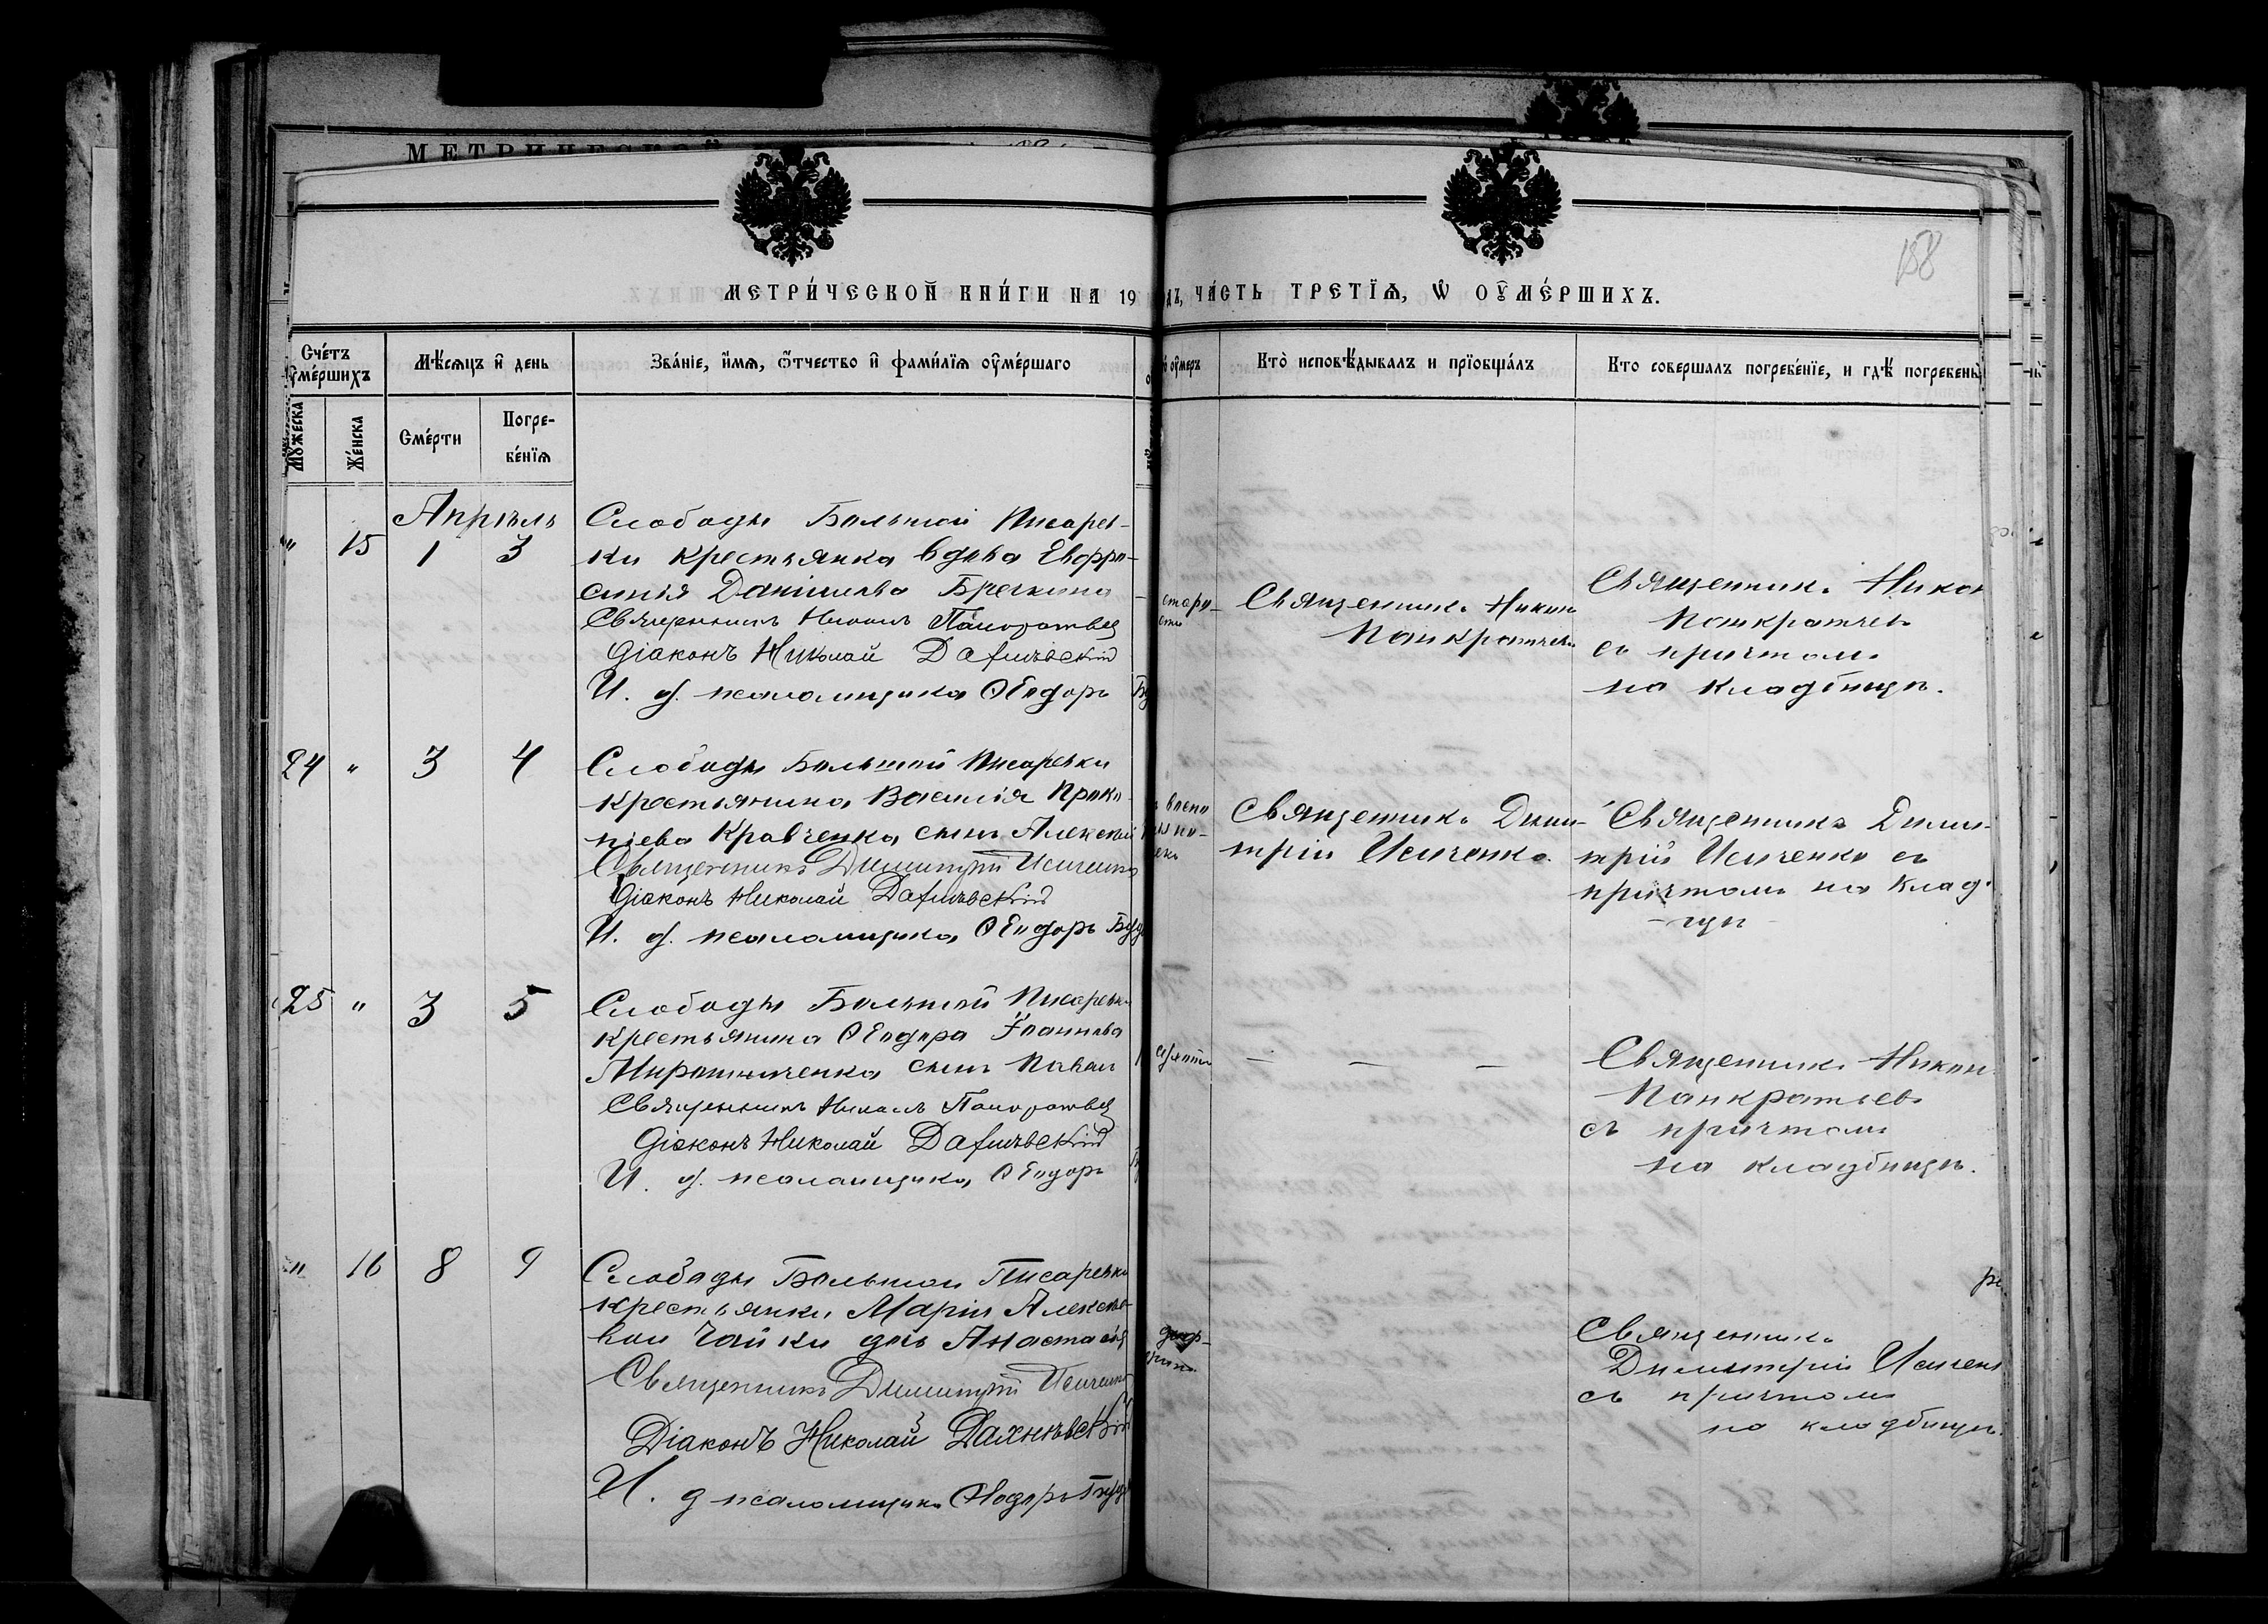 МЕТРИЧЕСКОЙ
158
МЕТРИ́ЧЕСКОЙ КНИ́ГИ НА 19
дъ, ЧА́СТЬ ТРЕТІѦ, Ѡ ОУМЕ́РШИХЪ.
Сче́тъ оумершихъ
Мѣ́сяцъ и день
Зва́ніе, и́мя, ѻ́тчество и фами́лїя оуме́ршаго
оумеръ
Кто̀ исповѣ́дывалъ и прїобща́лъ
Кто соверша́лъ погребе́нїе, и гдѣ̀ погребены
Мужеска
Же́нска
Сме́рти
Погре-
бе́нїя
Апрѣль
" 15 1 3
Слободы Большой Писарев-
ки крестьянка вдова Евфро-
синія Даніилова
Священникъ Никонъ Панкратьев
Діаконъ Николай Дахнѣвскій
И. д. псаломщика Ѳеодоръ
старо-
сти
Священникъ Никон
Панкратьевъ
Священникъ Никон
Панкратьевъ
съ причтомъ
на кладбищѣ.
24 " 3 4
Слободы Большой Писаревки
крестьянина Василія Проко-
піева Кравченка сынъ Алексій
Священникъ Димитрій Исиченко
Діаконъ Николай Дахнѣвскій
И. д. псаломщика Ѳеодоръ
Священникъ Дими-
трій Исиченко
Священникъ Дими-
трій Исиченко съ
причтомъ на клад-
щѣ
25 " 3 5
Слободы Большой Писаревки
крестьянина Ѳеодора Іоаннова
Мирошниченка сынъ Павел
Священникъ Никонъ Панкратьев
Діаконъ Николай Дахнѣвскій
И. д. псаломщика Ѳеодоръ
— — —
Священникъ Никон
Панкратьевъ
съ причтомъ
на кладбищѣ.
" 16 8 9
Слободы Большой Писаревки
крестьянки Маріи Алексѣе-
вой Чайки дочь Анастасія
Священникъ Димитрій Исиченко
Діаконъ Николай Дахнѣвскій
И. д. псаломщика Ѳеодоръ
Священникъ
Димитрій Исичен
съ причтомъ
на кладбищѣ.